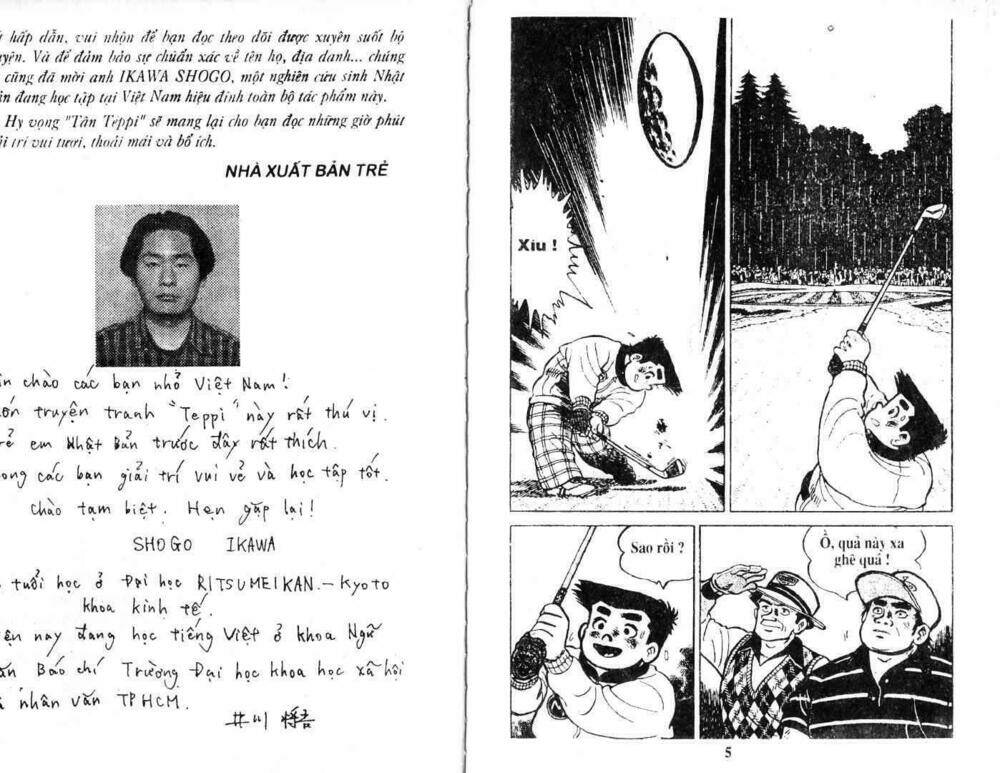 hấp dẫn, vui nhộn để bạn đọc theo dõi được xuyên suốt bộ
yện. Và để đảm bảo sự chuẩn xác về tên họ, địa danh... chúng
cũng đã mời anh IKAWA SHOGO, một nghiên cứu sinh Nhật
đang học tập tại Việt Nam hiệu đính toàn bộ tác phẩm này.
Hy vọng "Tân Teppi" sẽ mang lại cho bạn đọc những giờ phút
trí vui tươi, thoải mái và bổ ích.
NHÀ XUẤT BẢN TRẺ
in chào các bạn nhỏ Việt Nam!
truyện tranh "Teppi" này rất thú vị.
em Nhật Bản trước đây rất thích.
ong các bạn giải trí vui vẻ và học tập tốt.
chào tạm biệt. Hẹn gặp lại!
SHOGO IKAWA
tuổi học ở Đại học RITSUMEIKAN. - Kyoto
khoa kinh tế.
ện nay đang học tiếng Việt ở khoa Ngữ
Báo chí Trường Đại học khoa học xã hội
nhân văn TPHCM.
井川 将吾
Xiu !
Sao rồi ?
Ồ, quả này xa
ghê quá !
5